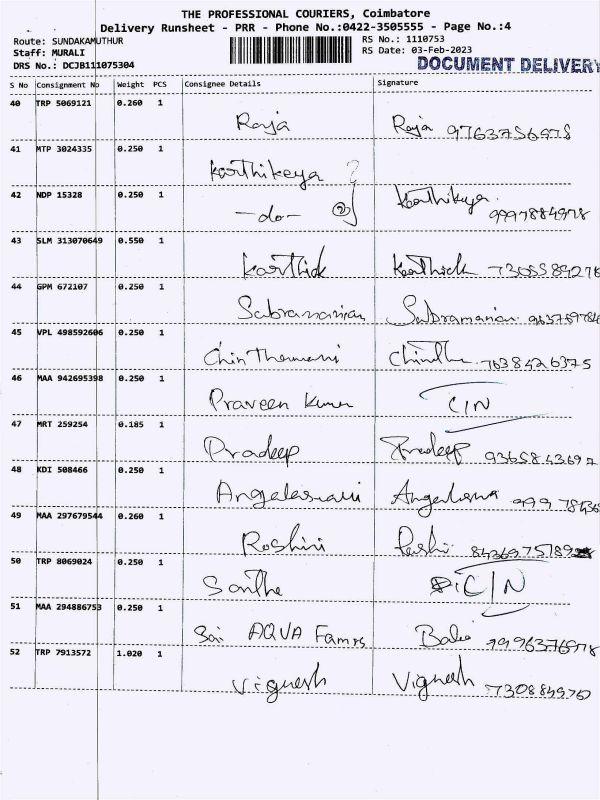 THE PROFESSIONAL COURIERS, Coimbatore
Delivery Runsheet - PRR - Phone No.:0422-3505555 - Page No.:4
Route: SUNDAKAMUTHUR RS No.: 1110753
Staff: MURALI RS Date: 03-Feb-2023
DRS No.: DCJB111075304 DOCUMENT DELIVERY
S No Consignment No Weight PCS Consignee Details Signature
40 TRP 5069121 0.260 1
Raja Raja
41 MTP 3024335 0.250 1
Karthikeya
42 NDP 15328 0.250 1
-do- 2 Karthikeya 9997884978
43 SLM 313070649 0.550 1
Karthick Karthick
44 GPM 672107 0.250 1
Subramanian Subramanian
45 VPL 498592606 0.250 1
Chinthamani 7638426375
46 MAA 942695398 0.250 1
Praveen Kumar C/N
47 MRT 259254 0.185 1
Pradeep Pradeep
48 KDI 508466 0.250 1
49 MAA 297679544 0.260 1
Roshini
50 TRP 8069024 0.250 1
C/N
51 MAA 294886753 0.250 1
Sai AQVA Famrs
52 TRP 7913572 1.020 1
Vignesh Vignesh